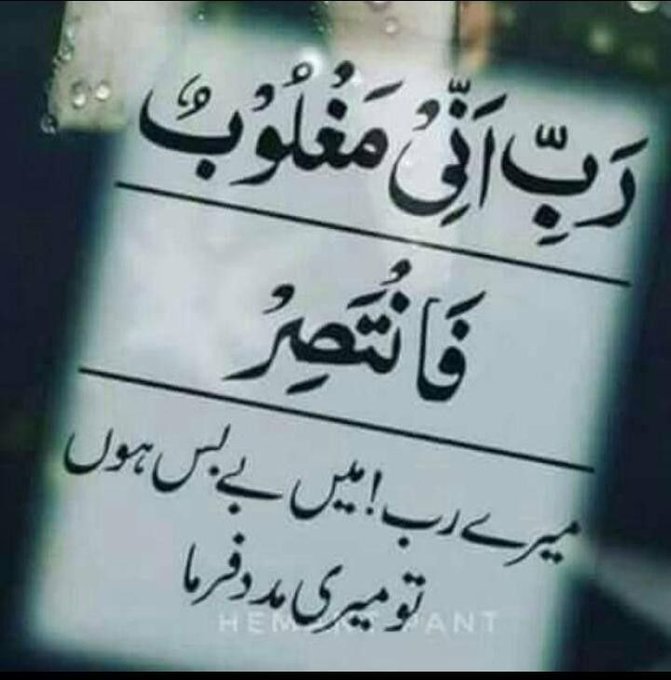 رَبِّ اَنِّیْ مَغْلُوْبٌ
فَانْتَصِرْ
میرے رب! میں بے بس ہوں
تو میری مدد فرما
HEMANT PANT